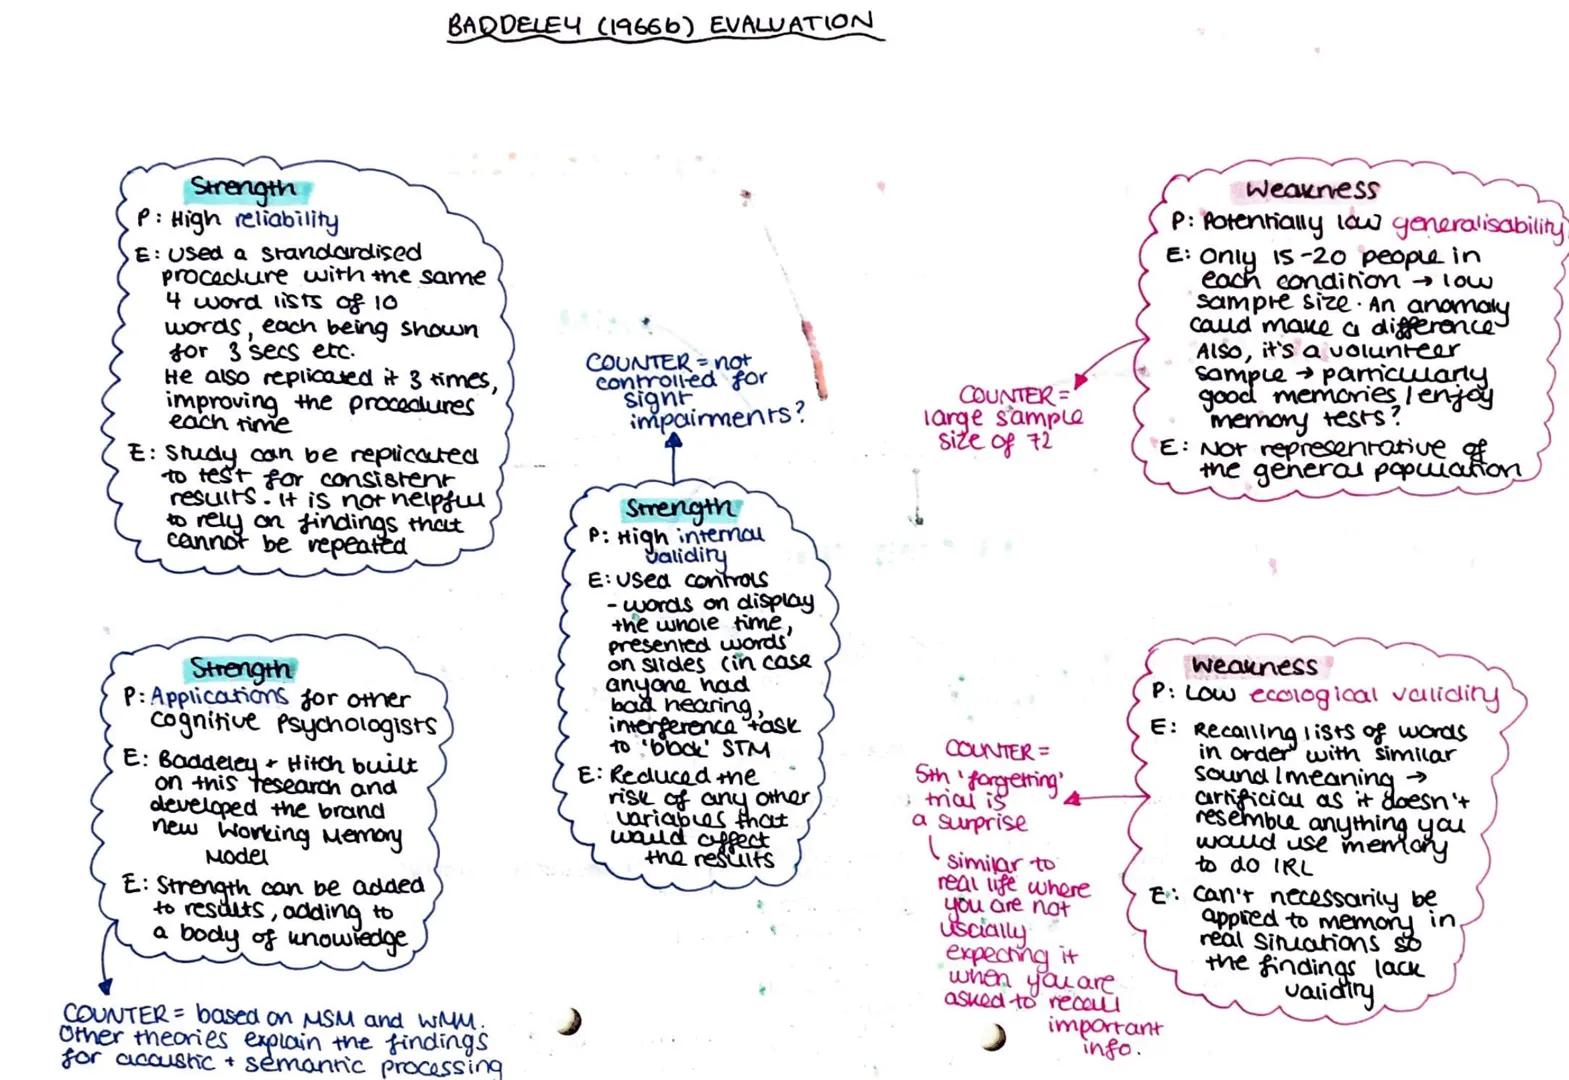 BADDELEY (1966b) EVALUATION
Strength
P: High reliability
E: Used a standardised
procedure with the same
4 word lists of 10
words, each being shown
for 3 secs etc.
He also replicated it 3 times,
improving the procedures
each time
E: Study can be replicated
to test for consistent
results. It is not helpful
to rely on findings that
cannot be repeated
Strength
P: Applications for other
cognitive Psychologists
E: Baddeley + Hitch built
on this research and
developed the brand
new Working Memory
Model
E: Strength can be added
to results, adding to
a body of knowledge
COUNTER = based on MSM and WMM.
Other theories explain the findings
for acoustic + semantic processing
COUNTER = not
controlled for
sight
impairments?
Strength
P: High internal
validity
E: Used controls
- words on display
the whole time,
presented words
on slides (in case
anyone had
bad hearing,
interference task
to 'block' STM
E: Reduced the
risk of any other
variables that
would affect
the results
Weakness
P: Potentially low generalisability
E: Only 15-20 people in
each condition → low
sample size. An anomaly
could make a difference
Also, it's a volunteer
sample → particularly
good memories / enjoy
memory tests?
E: Not representative of
the general population
COUNTER =
large sample
size of 72
Weakness
P: Low ecological validity
E: Recalling lists of words
in order with similar
sound / meaning →
artificial as it doesn't
resemble anything you
would use memory
to do IRL
E: Can't necessarily be
applied to memory in
real situations so
the findings lack
validity
COUNTER =
5th 'forgetting'
trial is
a surprise
similar to
real life where
you are not
usually
expecting it
when you are
asked to recall
important
info.